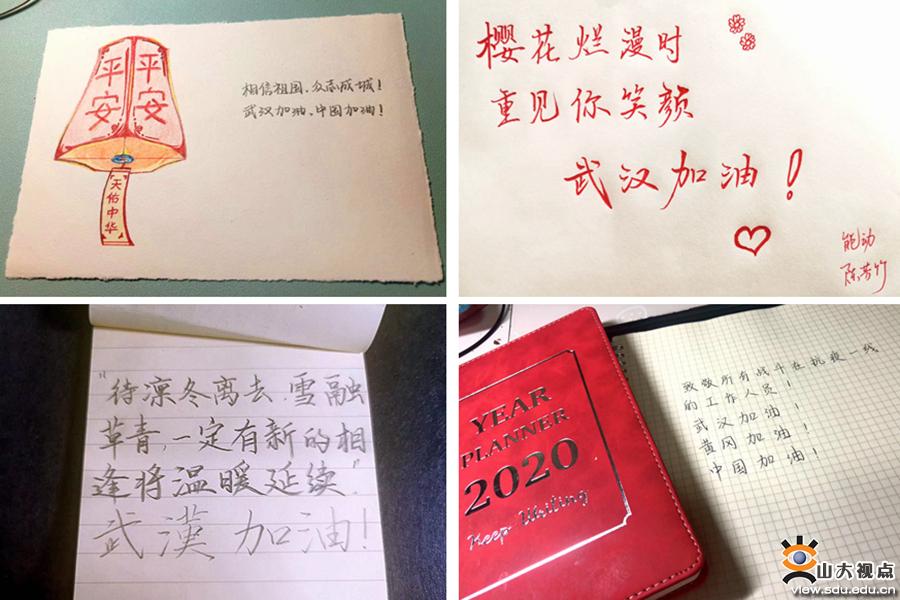 平安
平安
天佑中华
相信祖国，众志成城！
武汉加油、中国加油！
樱花烂漫时
重见你笑颜
武汉加油！
能动
陈芳竹
"待凛冬离去，雪融
草青，一定有新的相
逢将温暖延续"
武漢加油！
YEAR
PLANNER
2020
Keep Whiting
致敬所有战斗在抗疫一线
的工作人员！
武汉加油！
黄冈加油！
中国加油！
山大视点
view.sdu.edu.cn